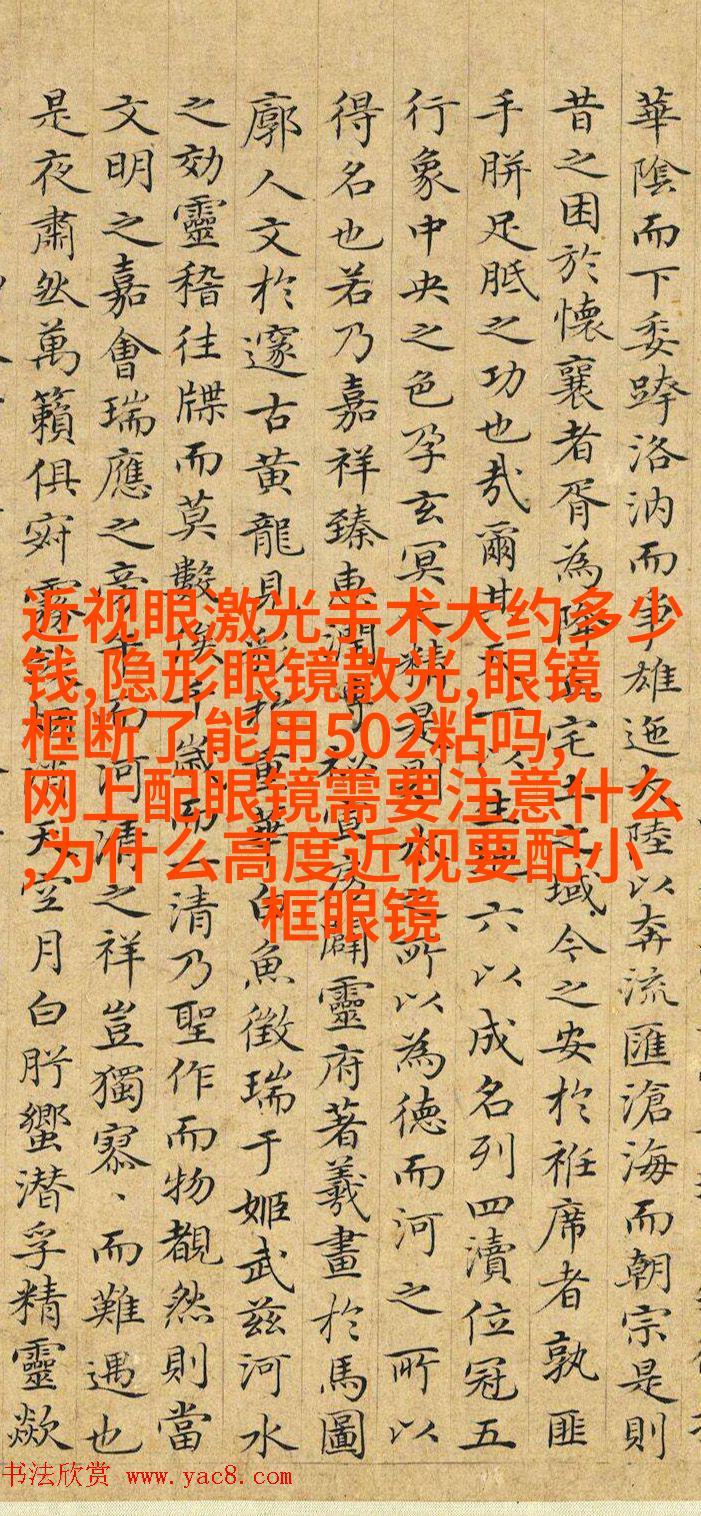 華陰而下委跨洛汭而雄迤大陸以奔流匯滄海而朝宗是則
昔之困於懷襄者胥為降宅土之域今之安於袵席者孰匪
手胼足胝之功也哉爾其天一以生地六以成名列四瀆位冠五
行象中央之色孕玄冥之精是則水之所以為德而河之所以
得名也若乃嘉祥臻惠潤闢靈府著羲畫於馬圖
廓人文於邃古黃龍見重華白魚徵瑞于姬武茲河水
之効靈稽往牒而莫數俟千歲而一清乃聖作而物覩然則當
文明之嘉會瑞應之而河清之祥豈獨寥、而難遇也
是夜肅然萬籟俱寂霧天空月白肸蠁潜孚精靈歘
近视眼激光手术大约多少
钱,隐形眼镜散光,眼镜
框断了能用502粘吗,
网上配眼镜需要注意什么
,为什么高度近视要配小
框眼镜
书法欣赏 www.yac8.com